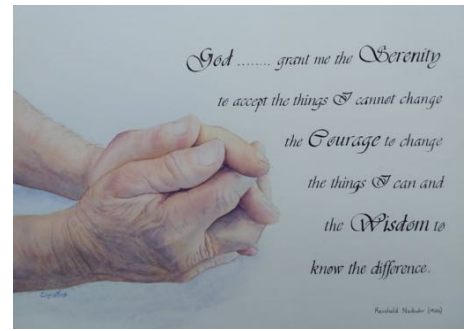 God ........ grant me the Serenity
to accept the things I cannot change
the Courage to change
the things I can and
the Wisdom to
know the difference.
Reinhold Niebuhr